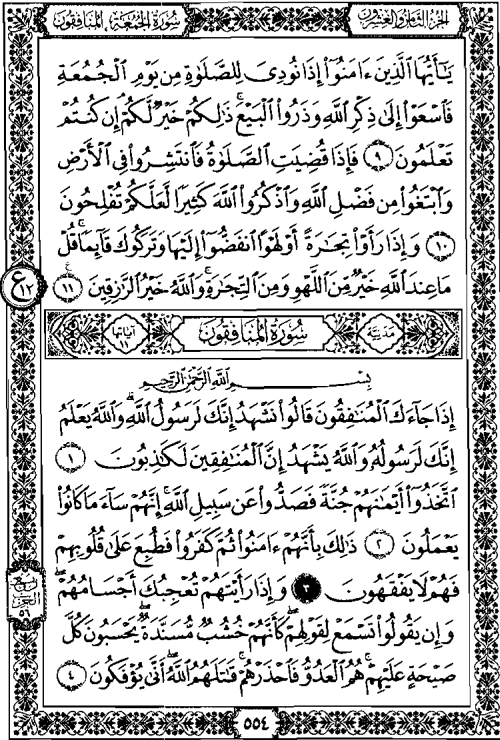 الجزء الثامن والعشرون
سورة الجمعة، المنافقون
يَٰٓأَيُّهَا ٱلَّذِينَ ءَامَنُوٓا۟ إِذَا نُودِىَ لِلصَّلَوٰةِ مِن يَوْمِ ٱلْجُمُعَةِ
فَٱسْعَوْا۟ إِلَىٰ ذِكْرِ ٱللَّهِ وَذَرُوا۟ ٱلْبَيْعَ ۚ ذَٰلِكُمْ خَيْرٌ لَّكُمْ إِن كُنتُمْ
تَعْلَمُونَ ٩ فَإِذَا قُضِيَتِ ٱلصَّلَوٰةُ فَٱنتَشِرُوا۟ فِى ٱلْأَرْضِ
وَٱبْتَغُوا۟ مِن فَضْلِ ٱللَّهِ وَٱذْكُرُوا۟ ٱللَّهَ كَثِيرًا لَّعَلَّكُمْ تُفْلِحُونَ
١٠ وَإِذَا رَأَوْا۟ تِجَٰرَةً أَوْ لَهْوًا ٱنفَضُّوٓا۟ إِلَيْهَا وَتَرَكُوكَ قَآئِمًا ۚ قُلْ
مَا عِندَ ٱللَّهِ خَيْرٌ مِّنَ ٱللَّهْوِ وَمِنَ ٱلتِّجَٰرَةِ ۚ وَٱللَّهُ خَيْرُ ٱلرَّٰزِقِينَ ١١
ع ١٢
مدنية
سُورَةُ المُنَافِقُون
آياتها ١١
بِسْمِ ٱللَّهِ ٱلرَّحْمَٰنِ ٱلرَّحِيمِ
إِذَا جَآءَكَ ٱلْمُنَٰفِقُونَ قَالُوا۟ نَشْهَدُ إِنَّكَ لَرَسُولُ ٱللَّهِ ۗ وَٱللَّهُ يَعْلَمُ
إِنَّكَ لَرَسُولُهُۥ وَٱللَّهُ يَشْهَدُ إِنَّ ٱلْمُنَٰفِقِينَ لَكَٰذِبُونَ ١
ٱتَّخَذُوٓا۟ أَيْمَٰنَهُمْ جُنَّةً فَصَدُّوا۟ عَن سَبِيلِ ٱللَّهِ ۚ إِنَّهُمْ سَآءَ مَا كَانُوا۟
يَعْمَلُونَ ٢ ذَٰلِكَ بِأَنَّهُمْ ءَامَنُوا۟ ثُمَّ كَفَرُوا۟ فَطُبِعَ عَلَىٰ قُلُوبِهِمْ
فَهُمْ لَا يَفْقَهُونَ ٣ وَإِذَا رَأَيْتَهُمْ تُعْجِبُكَ أَجْسَامُهُمْ ۖ
ربع الحزب ٥٦
وَإِن يَقُولُوا۟ تَسْمَعْ لِقَوْلِهِمْ ۖ كَأَنَّهُمْ خُشُبٌ مُّسَنَّدَةٌ ۖ يَحْسَبُونَ كُلَّ
صَيْحَةٍ عَلَيْهِمْ ۚ هُمُ ٱلْعَدُوُّ فَٱحْذَرْهُمْ ۚ قَٰتَلَهُمُ ٱللَّهُ ۖ أَنَّىٰ يُؤْفَكُونَ ٤
٥٥٤